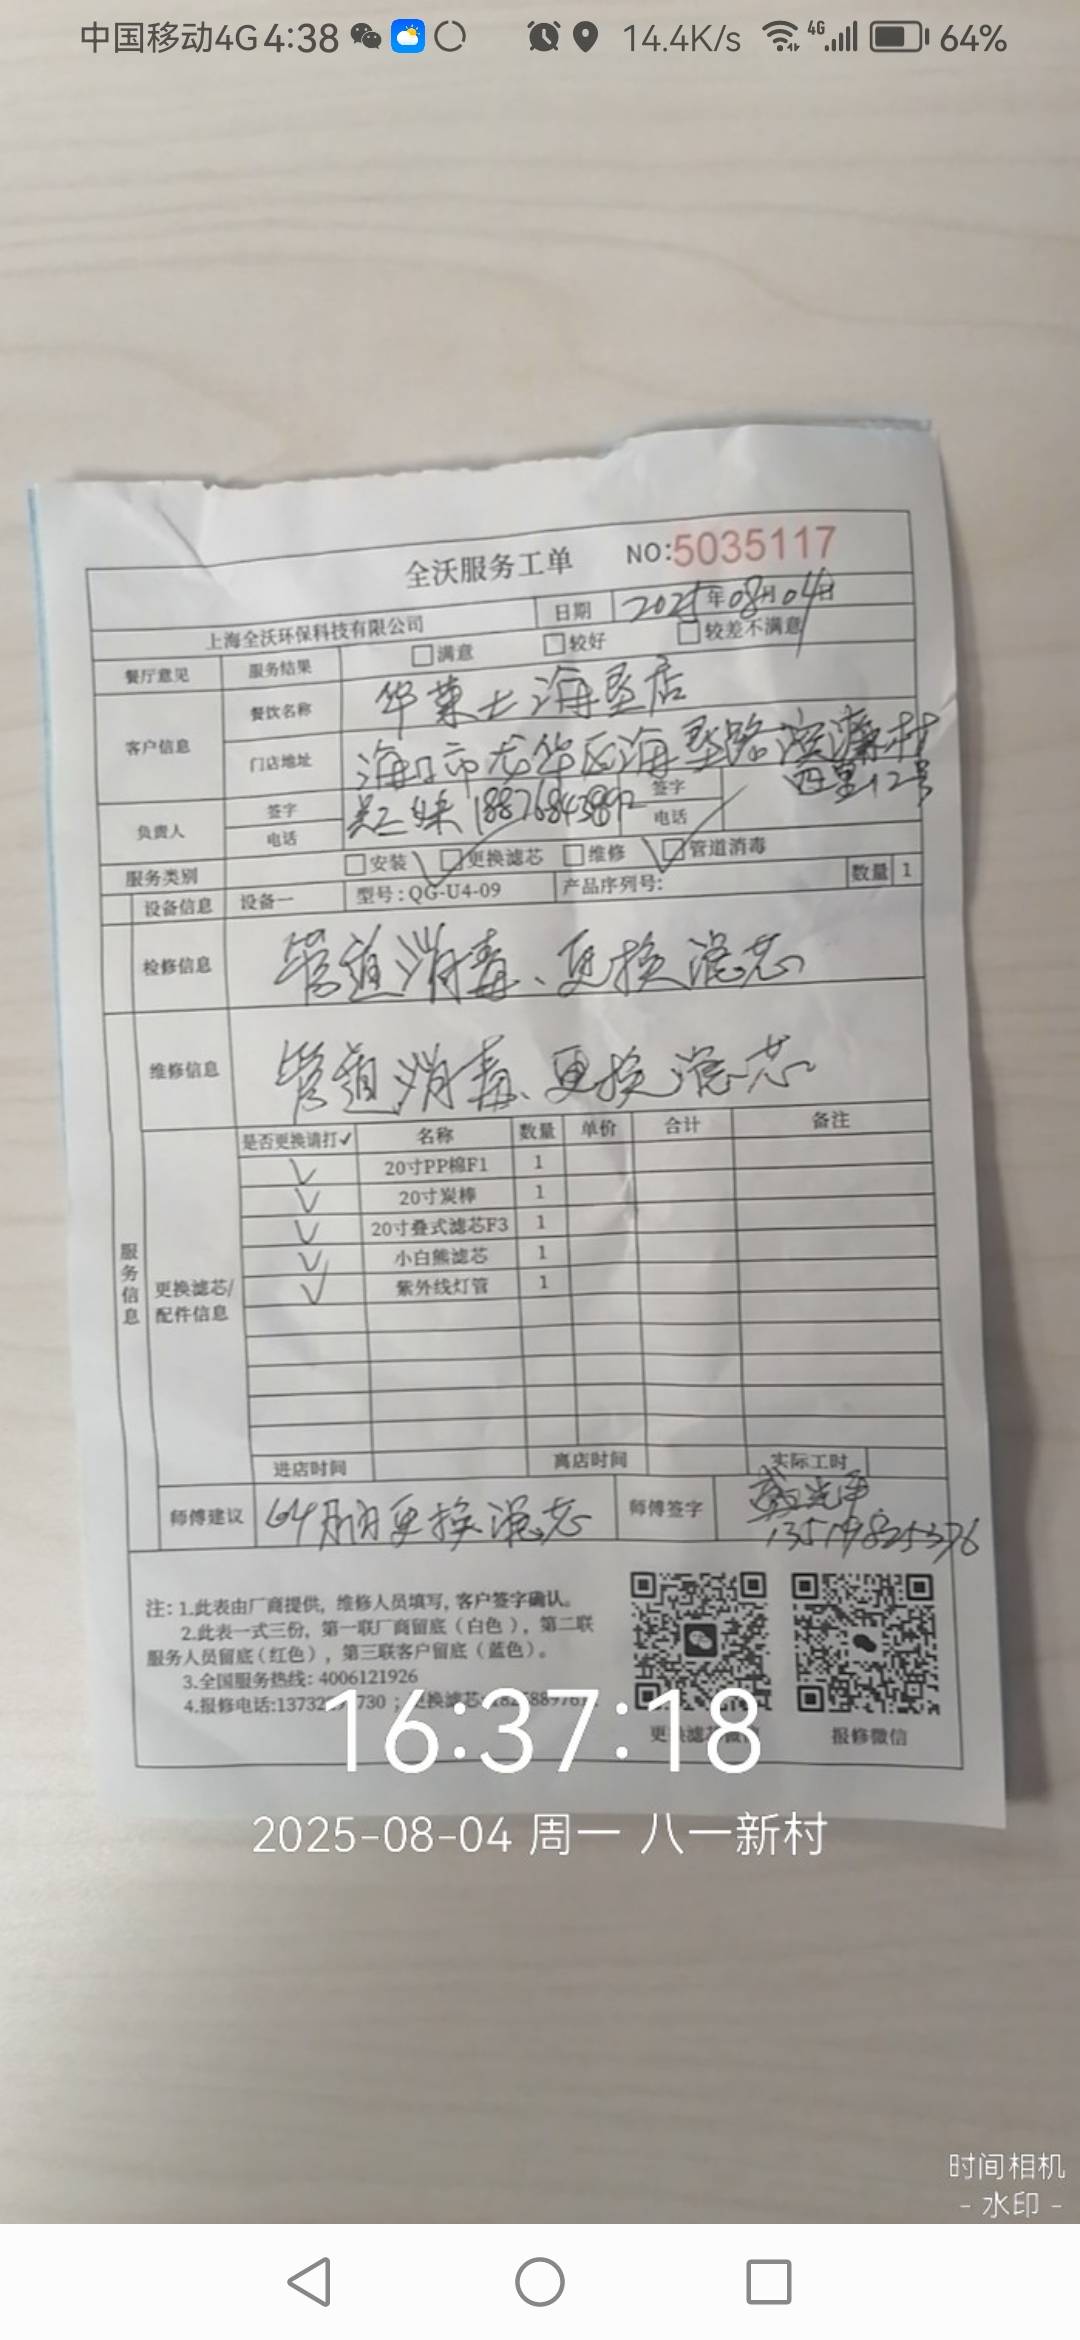 中国移动4G 4:38 14.4K/s 4G 64%
全沃服务工单 NO:5035117
上海全沃环保科技有限公司 日期 2025年08月04日
餐厅意见 服务结果 满意 较好 较差不满意
客户信息 餐饮名称 华莱士海垦店
门店地址 海口市龙华区海垦路滨濂村
四里12号
负责人 签字 吴三妹 签字
电话 18876843892 电话
服务类别 安装 更换滤芯 维修 管道消毒
设备信息 设备一 型号:QG-U4-09 产品序列号: 数量 1
检修信息 管道消毒、更换滤芯
维修信息 管道消毒、更换滤芯
服务信息
更换滤芯/配件信息
是否更换请打✓ 名称 数量 单价 合计 备注
✓ 20寸PP棉F1 1
✓ 20寸炭棒 1
✓ 20寸叠式滤芯F3 1
✓ 小白熊滤芯 1
✓ 紫外线灯管 1
进店时间 离店时间 实际工时
师傅建议 更换滤芯 师傅签字
注: 1.此表由厂商提供, 维修人员填写, 客户签字确认。
2.此表一式三份, 第一联厂商留底(白色), 第二联
服务人员留底(红色), 第三联客户留底(蓝色)。
3.全国服务热线: 4006121926
4.报修电话:
报修微信
16:37:18
2025-08-04 周一 八一新村
时间相机
- 水印 -